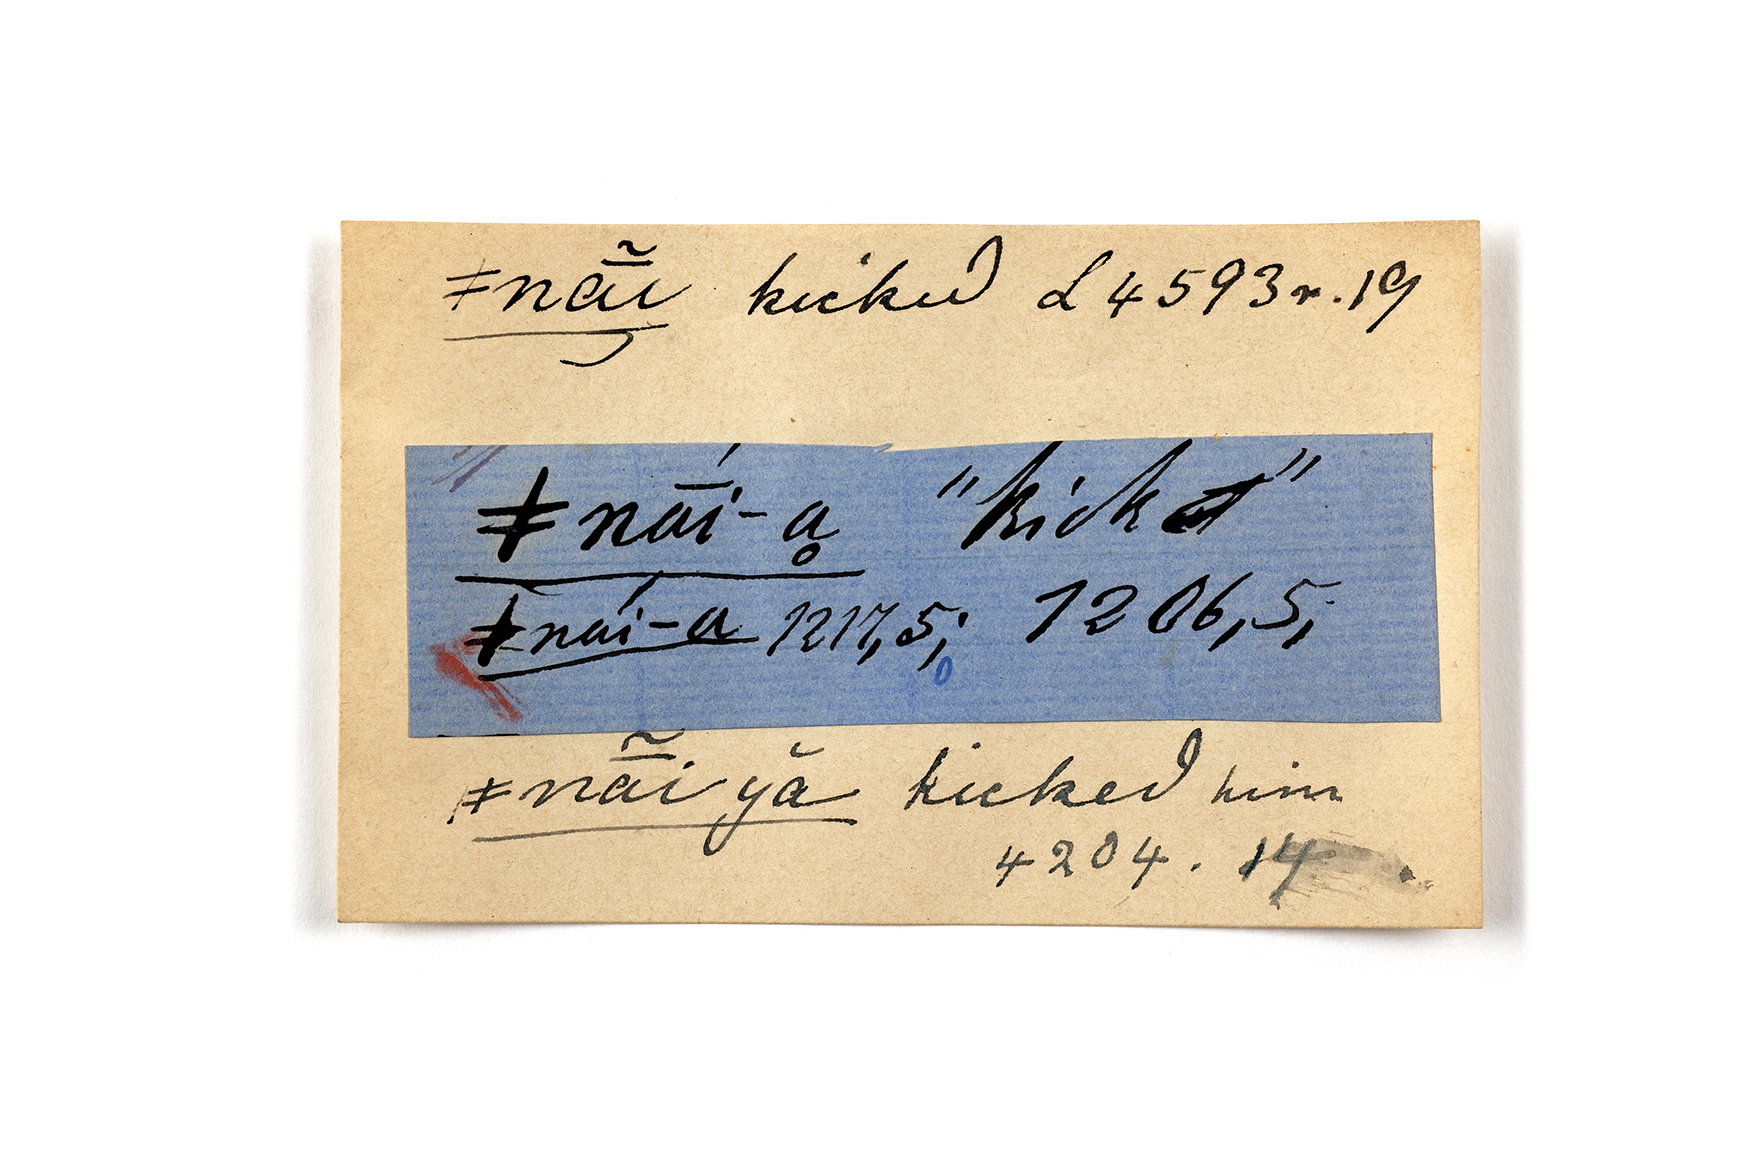 ǂnā̃i kicked L 4593 r. 19
ǂnā́i-ḁ "kick"
ǂnái-a 1217,5; 1206,5;
ǂnā̃i yă kicked him
4204. 14